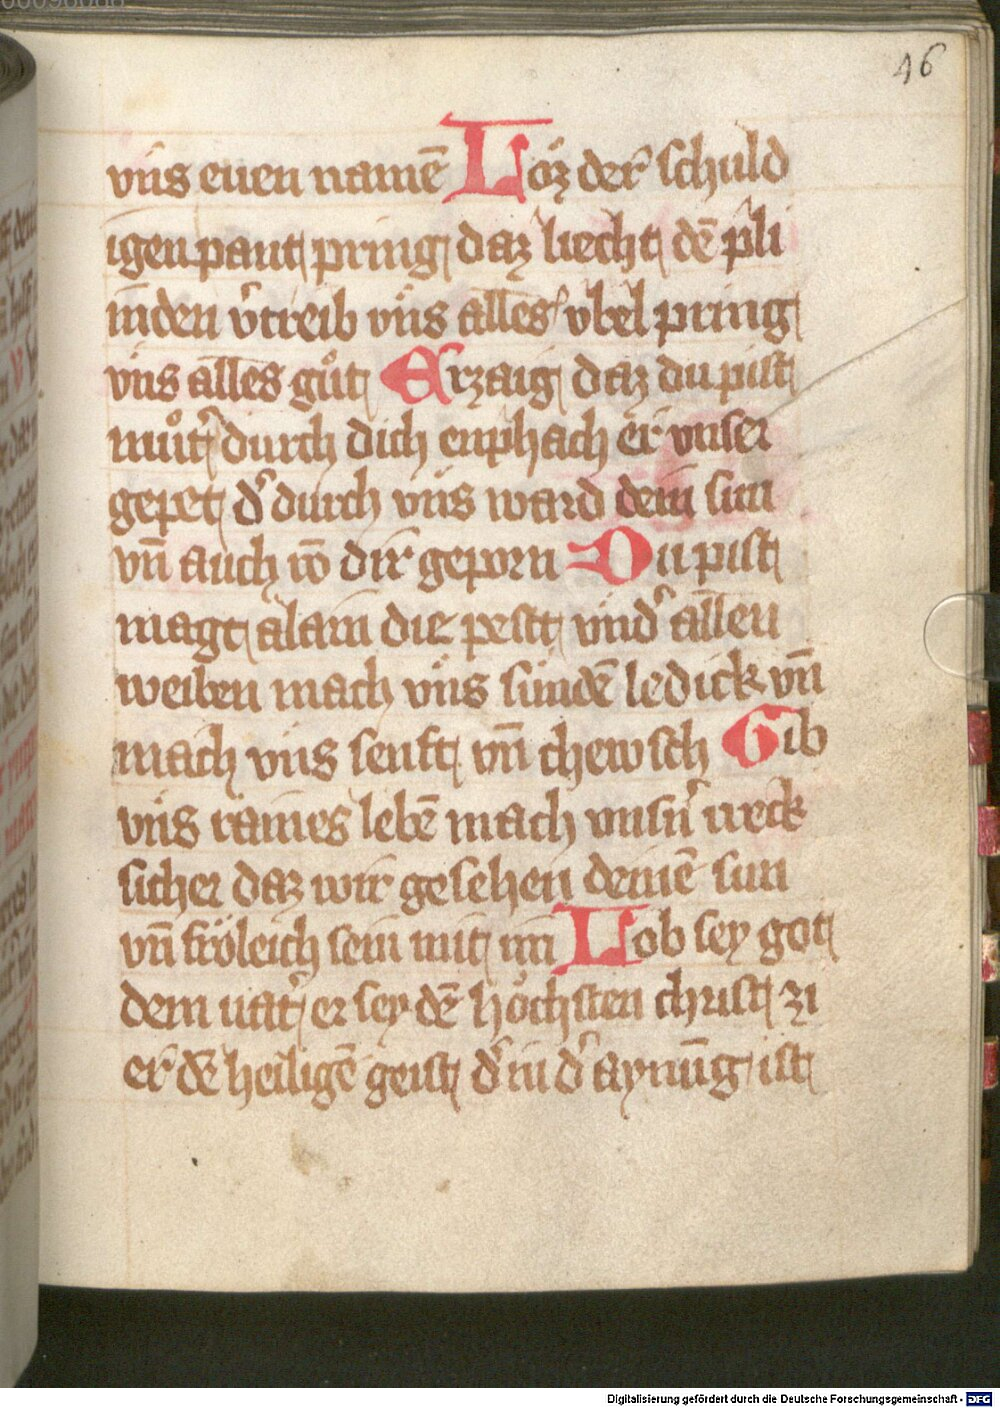 46
vns euen namē Löz der schuld
igen pant pring daz liecht dē pli
inden v̾treib vns alles vbel pring
vns alles gůt Erzaig daz du pist
můt̾ durch dich enphach er vnser
gepet d̾ durch vns ward dein sun
vn̄ auch vō dir geporn Du pist
magt alain die pest vnd̾ allen
weiben mach vns sündē ledick vn̄
mach vns senft vn̄ chewsch Gib
vns raines lebē mach vnsn̾ weck
sicher daz wir gesehen deinē sun
vn̄ fröleich sein mit im Lob sey got
dem uat̾ er sey dē höchsten christ zi
er dē heiligē geist d̾ in d̾ aynūg ist
Digitalisierung gefördert durch die Deutsche Forschungsgemeinschaft - DFG